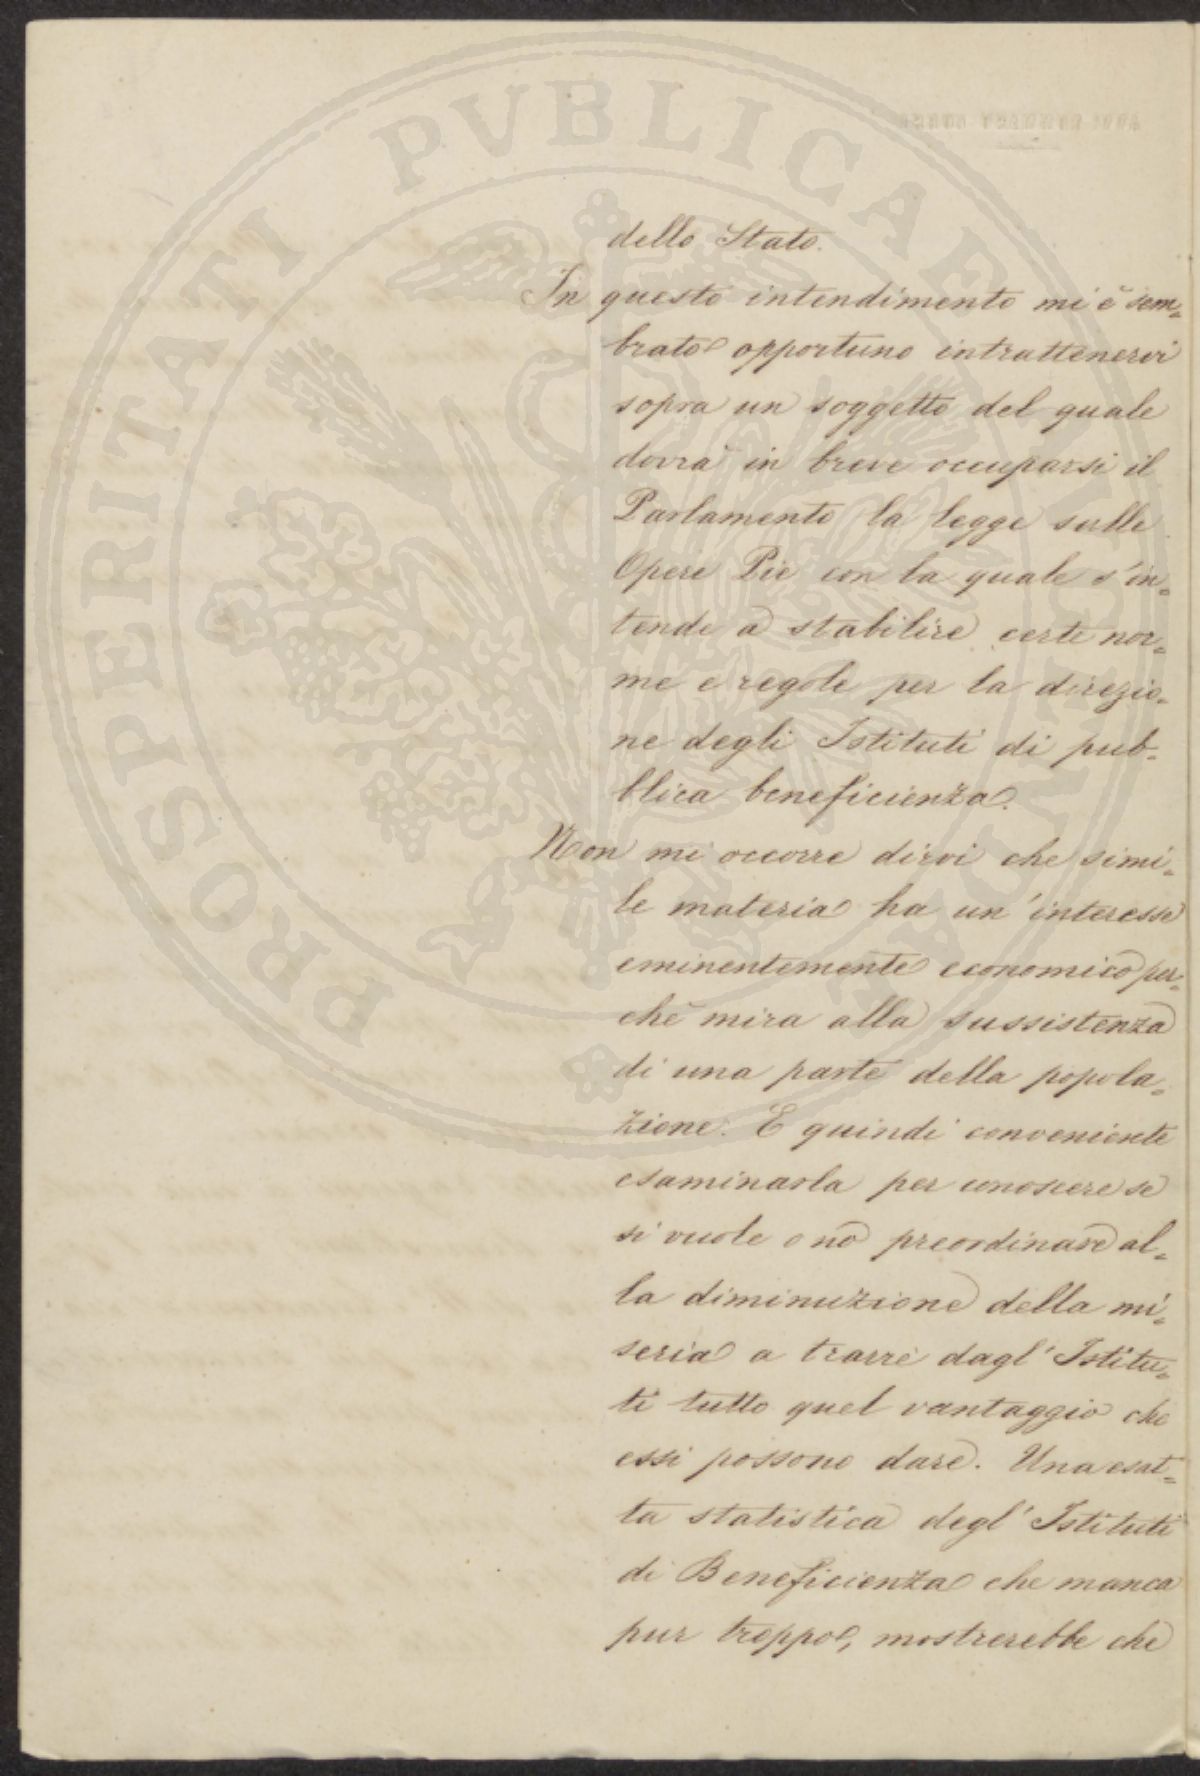 dello Stato.
In questo intendimento mi è sem=
brato opportuno intrattenervi
sopra un soggetto del quale
dovrà in breve occuparsi il
Parlamento la legge sulle
Opere Pie con la quale s'in=
tende a stabilire certe nor=
me e regole per la direzio=
ne degli Istituti di pub=
blica beneficienza.
Non mi occorre dirvi che simi=
le materia ha un'interesse
eminentemente economico per=
chè mira alla sussistenza
di una parte della popola=
zione. E quindi conveniente
esaminarla per conoscere se
si vuole o nò preordinare al=
la diminuzione della mi=
seria a trarre dagl'Istitu=
ti tutto quel vantaggio che
essi possono dare. Una esat=
ta statistica degl'Istituti
di Beneficienza che manca
pur troppo, mostrerebbe che
PROSPERITATI PVBLICAE PVBLICANDAE